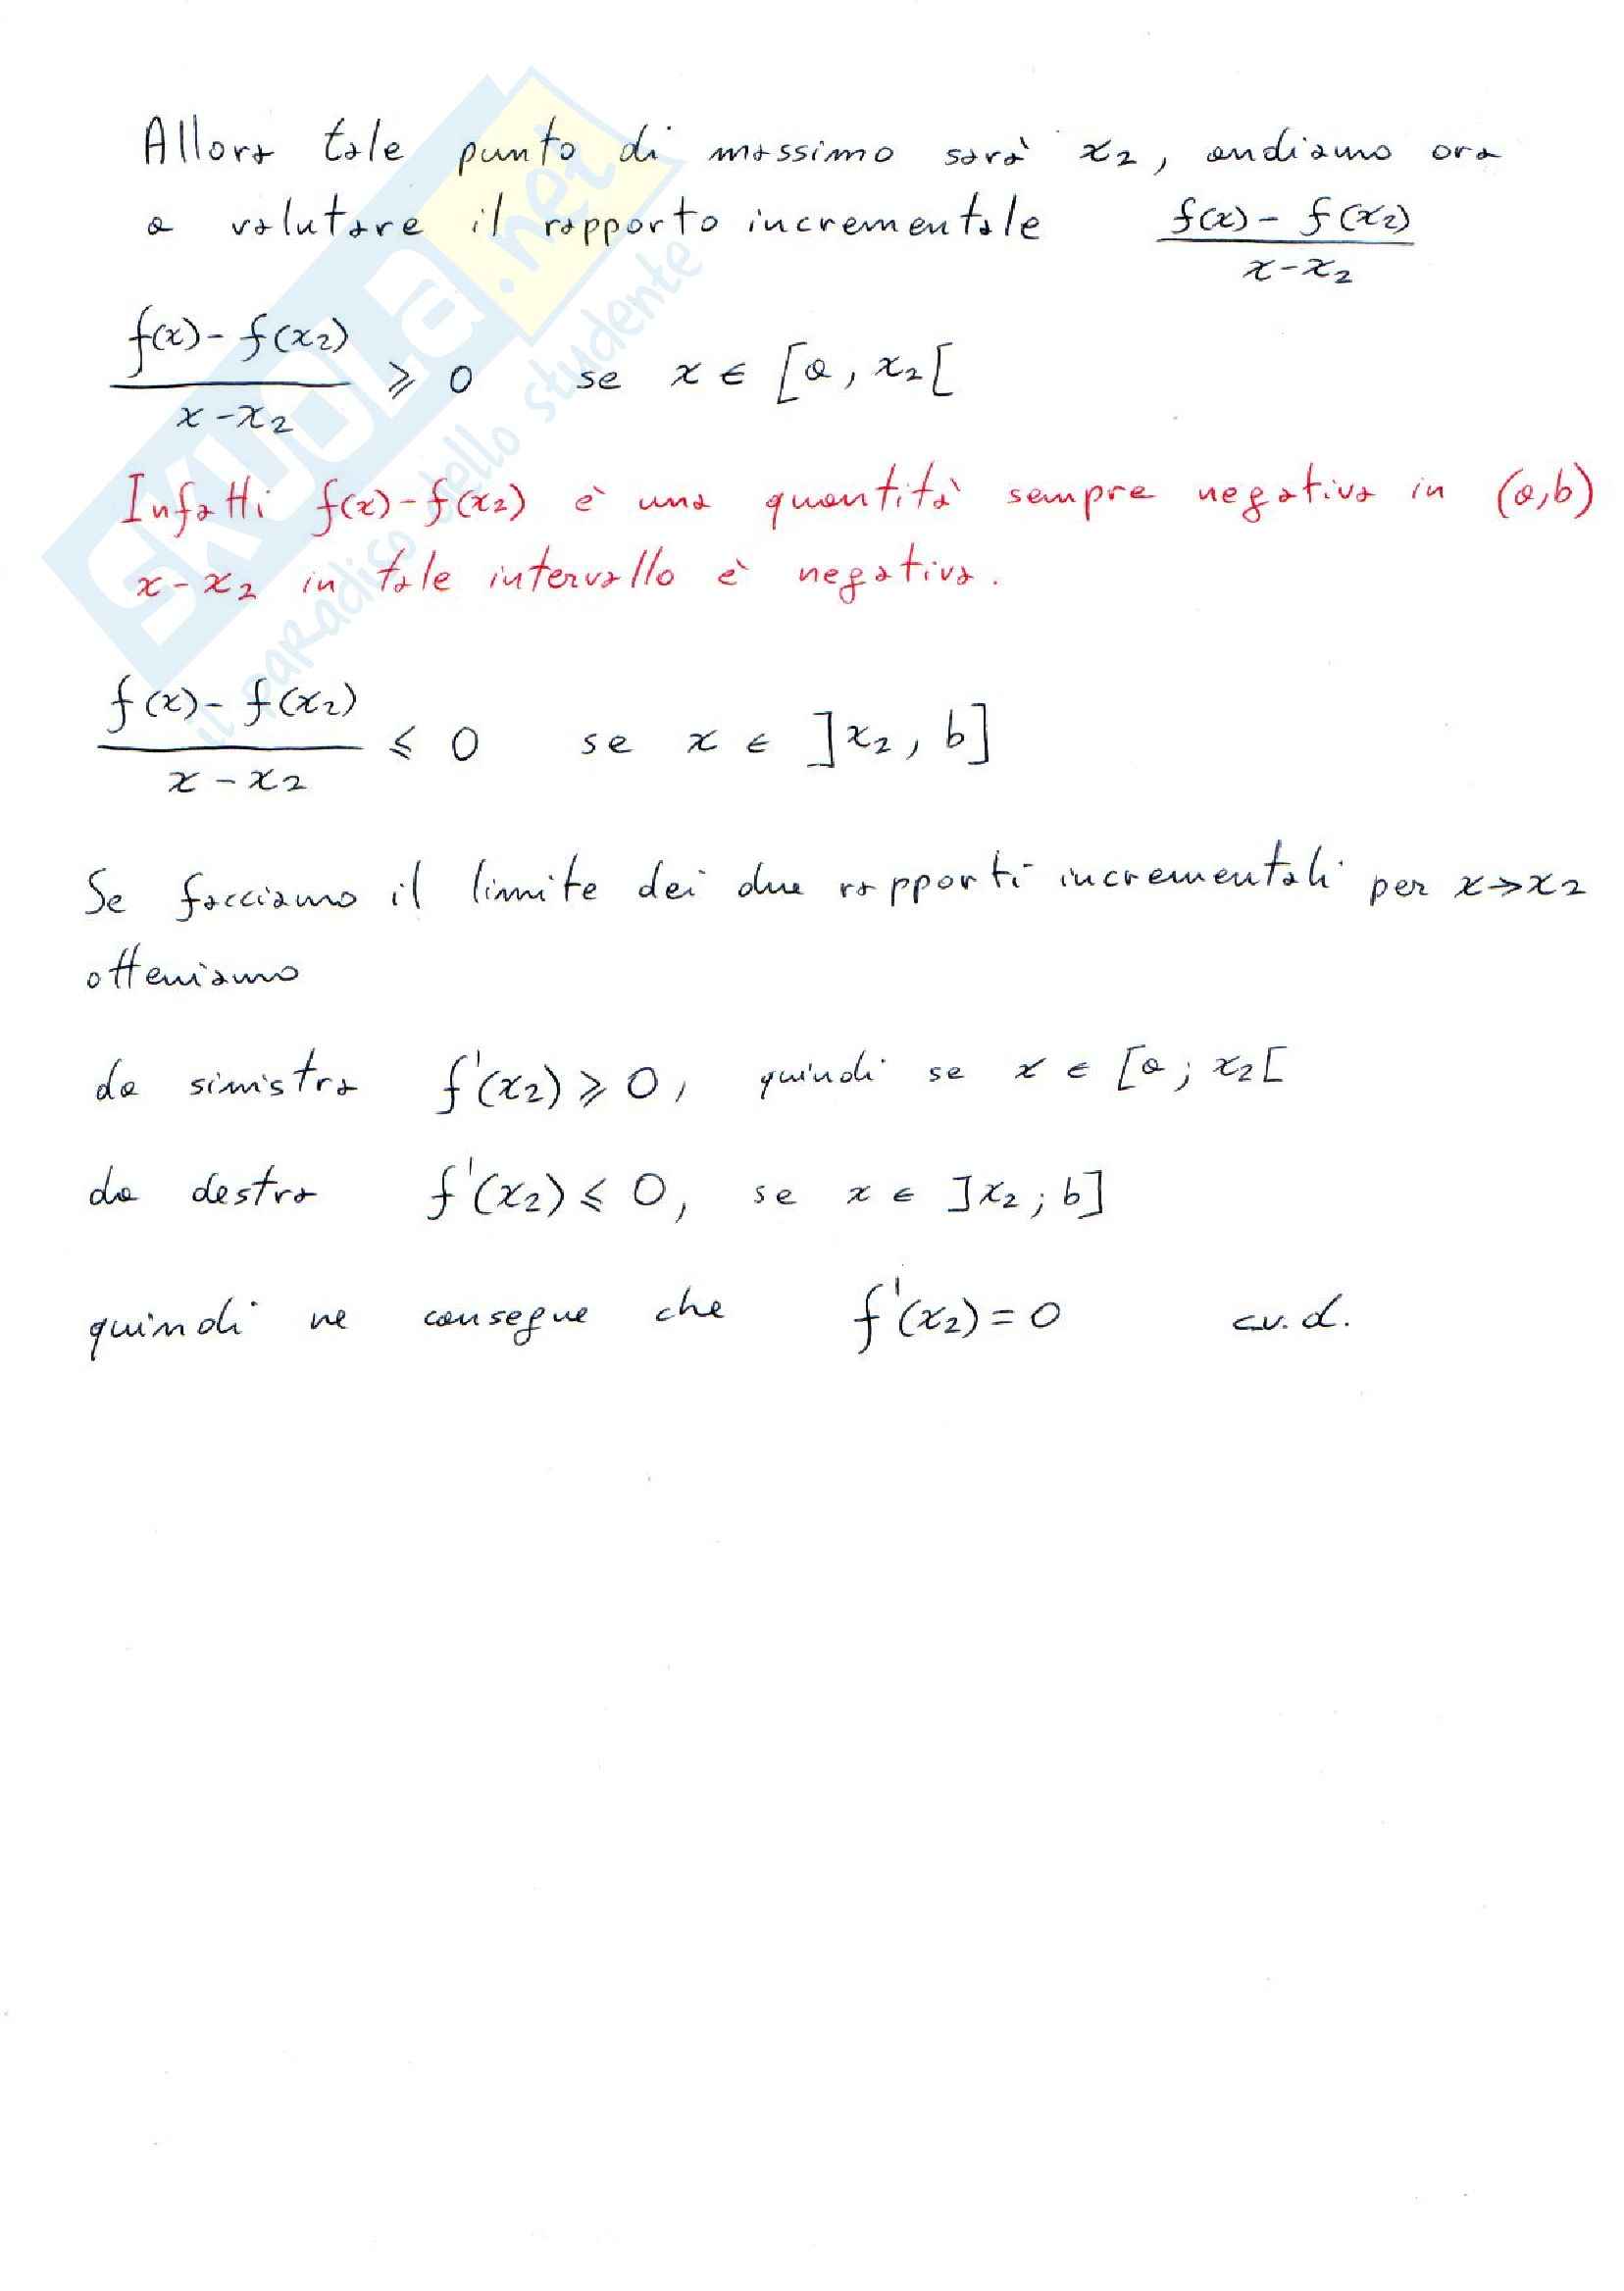 Allora tale punto di massimo sarà x₂, andiamo ora
a valutare il rapporto incrementale (f(x) - f(x₂))/(x - x₂)
(f(x) - f(x₂))/(x - x₂) ⩾ 0 se x ∈ [a, x₂[
Infatti f(x) - f(x₂) è una quantità sempre negativa in (a,b)
x - x₂ in tale intervallo è negativa.
(f(x) - f(x₂))/(x - x₂) ⩽ 0 se x ∈ ]x₂, b]
Se facciamo il limite dei due rapporti incrementali per x→x₂
otteniamo
da sinistra f'(x₂) ⩾ 0, quindi se x ∈ [a; x₂[
da destra f'(x₂) ⩽ 0, se x ∈ ]x₂; b]
quindi ne consegue che f'(x₂) = 0 c.v.d.
SKUOLA.net
il paradiso dello studente